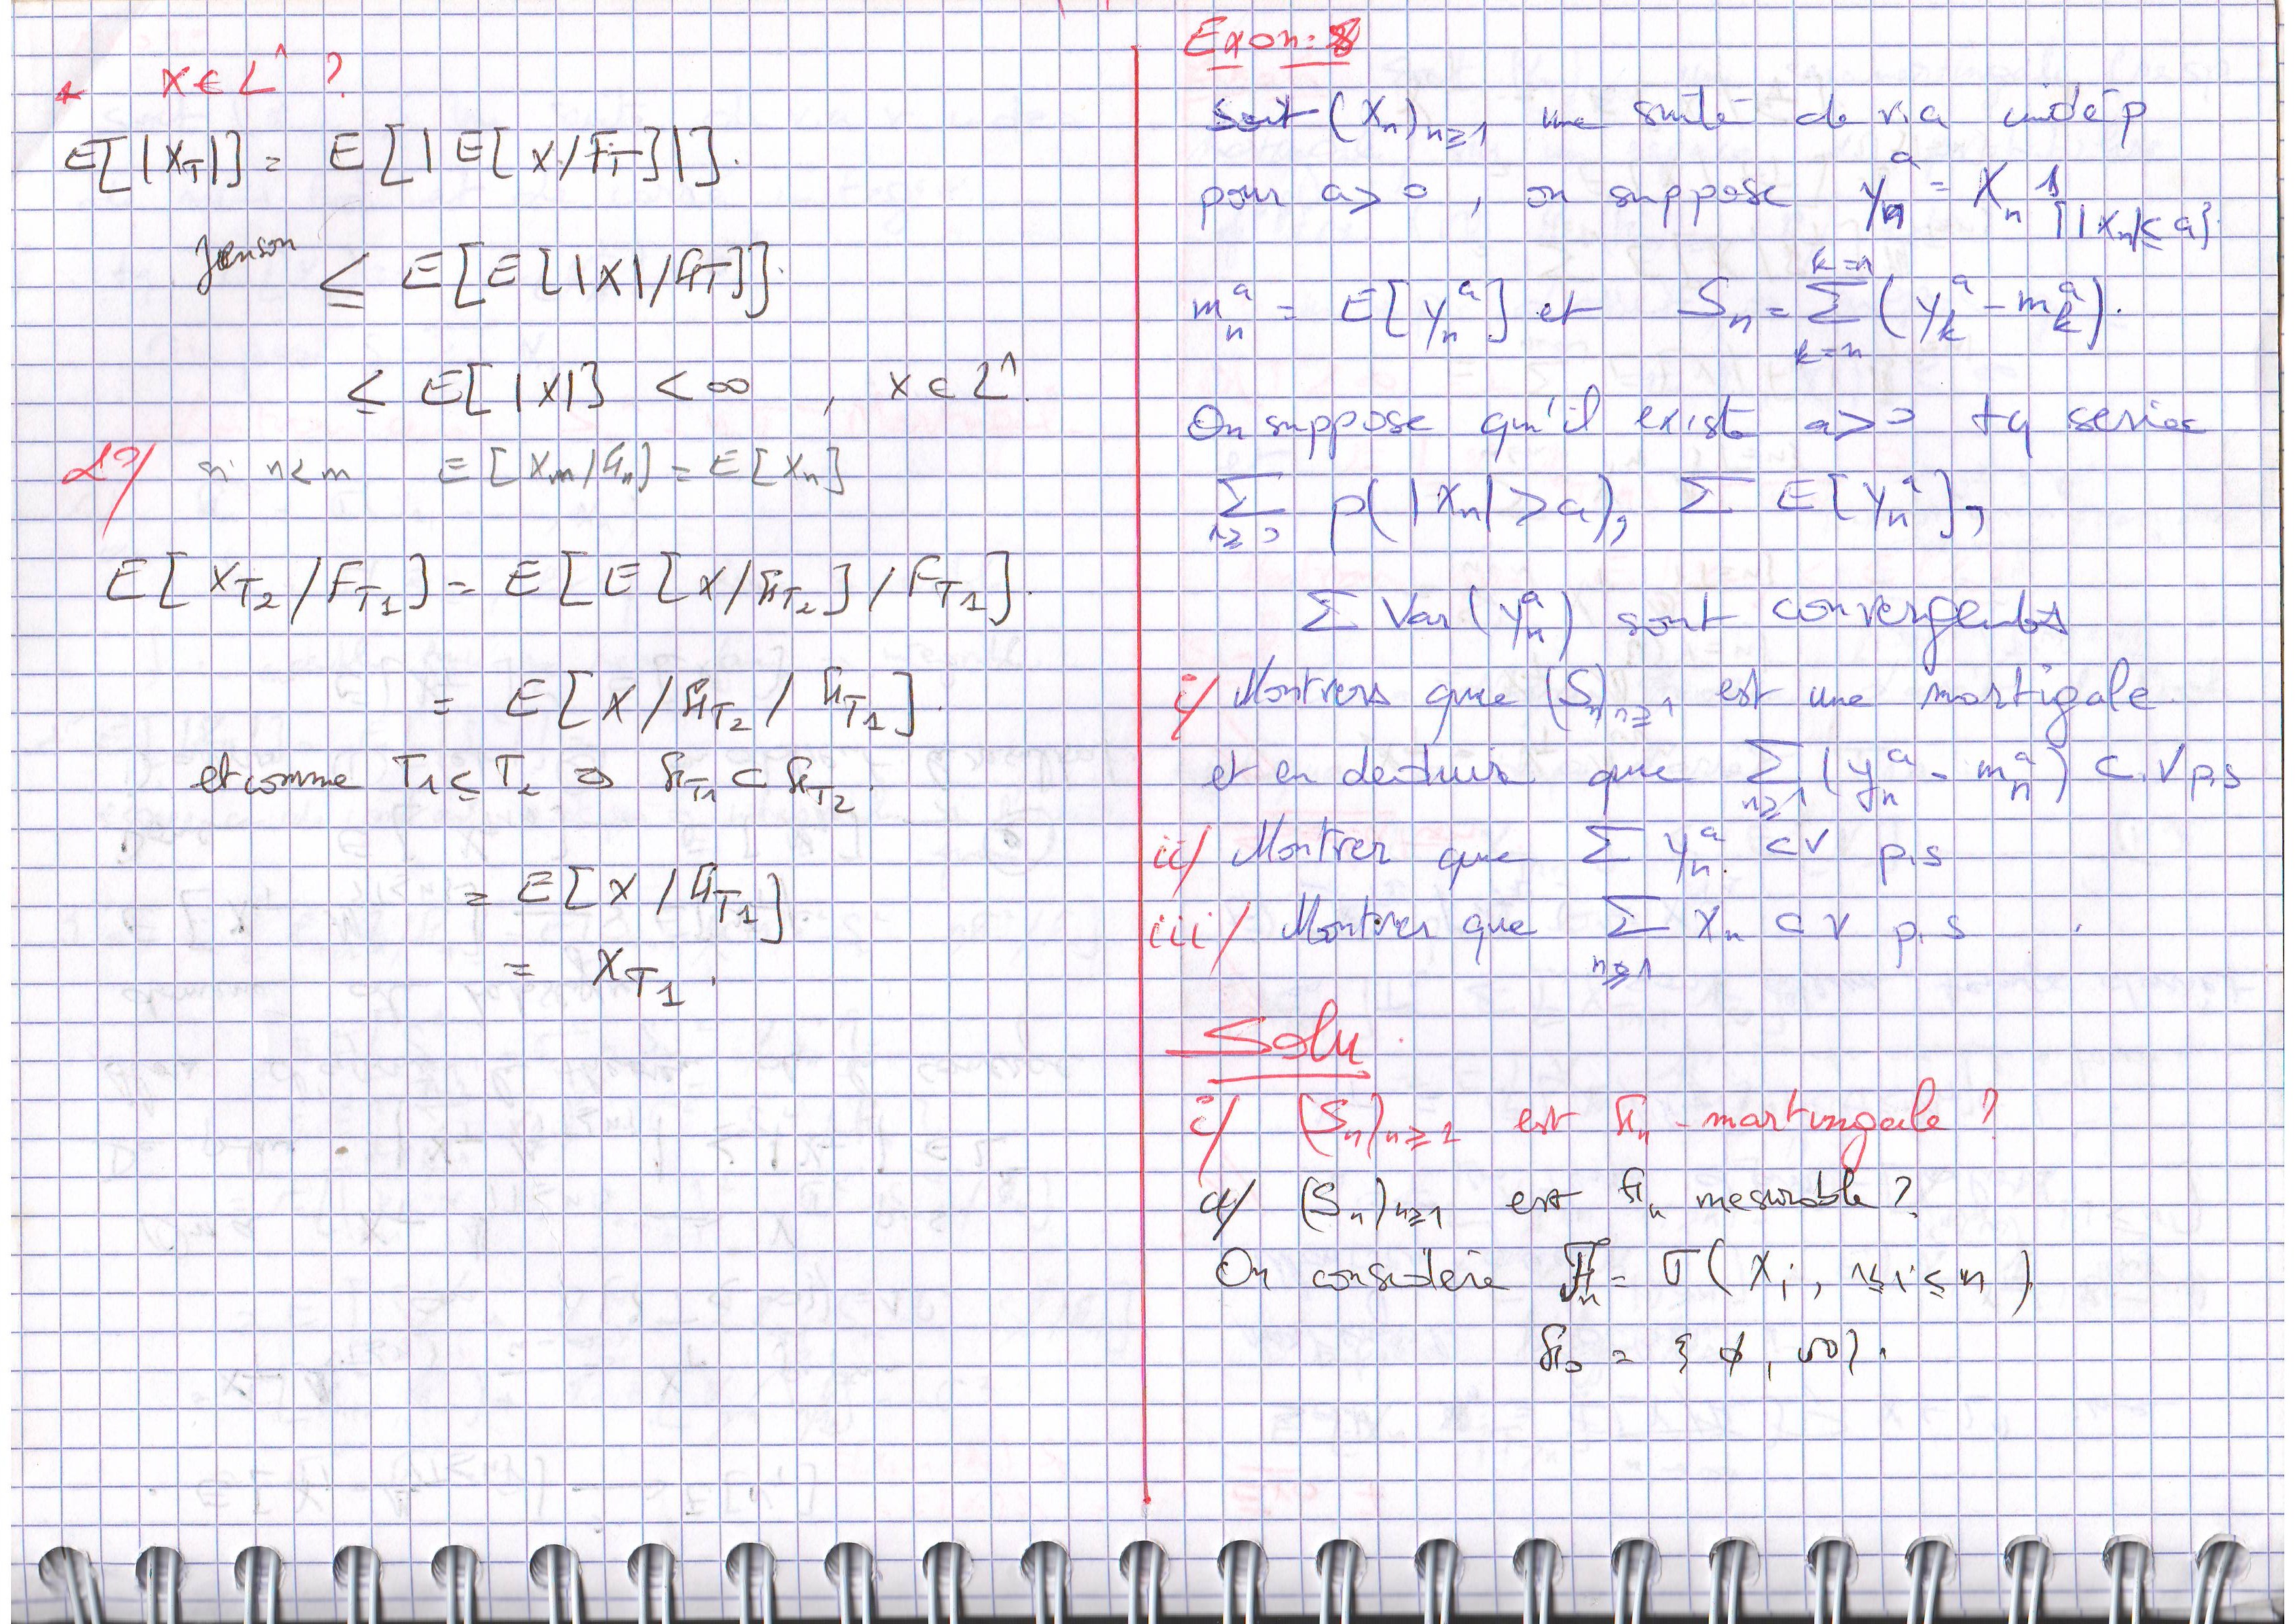 * X ∈ L^1 ?
E[|X_T|] = E[|E[X/F_T]|].
Jenson ≤ E[E[|X|/F_T]].
≤ E[|X|] < ∞ , X ∈ L^1.
2°/ si n<m E[X_m/F_n] = E[X_n]
E[X_{T_2}/F_{T_1}] = E[E[X/F_{T_2}]/F_{T_1}].
= E[X/F_{T_2}/F_{T_1}].
et comme T_1 ≤ T_2 ⇒ F_{T_1} ⊂ F_{T_2}.
= E[X/F_{T_1}]
= X_{T_1}.
Exo n: 8
Soit (X_n)_{n≥1} une suite de v.a indép
pour a > 0 , on suppose y_n^a = X_n 1_{{|X_n| ≤ a}}.
m_n^a = E[y_n^a] et S_n = Σ_{k=n}^{k=n} (y_k^a - m_k^a).
On suppose qu'il existe a > 0 tq series
Σ_{n≥0} p(|X_n| > a), Σ E[y_n^a],
Σ Var(y_n^a) sont convergentes
i/ Montrers que (S_n)_{n≥1} est une martigale.
et en deduir que Σ_{n≥1} (y_n^a - m_n^a) C.V p.s
ii/ Montrer que Σ y_n^a. CV p.s
iii/ Montrer que Σ_{n≥1} X_n CV p.s .
Solu.
i/ (S_n)_{n≥1} est F_n - martingale ?
a/ (S_n)_{n≥1} est F_n mesurable ?
On considère F_n = σ(X_i, 1≤i≤n)
F_0 = {φ, Ω}.